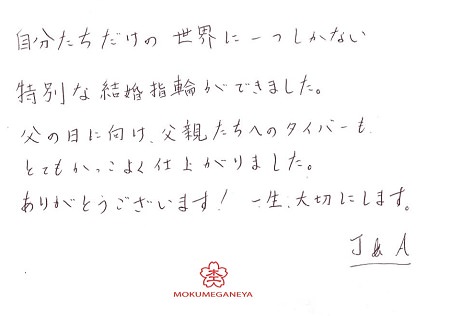 自分たちだけの 世界に一つしかない
特別な結婚指輪ができました。
父の日に向け、父親たちへのタイバーも
とてもかっこよく仕上がりました。
ありがとうございます! 一生、大切にします。
J & A
MOKUMEGANEYA